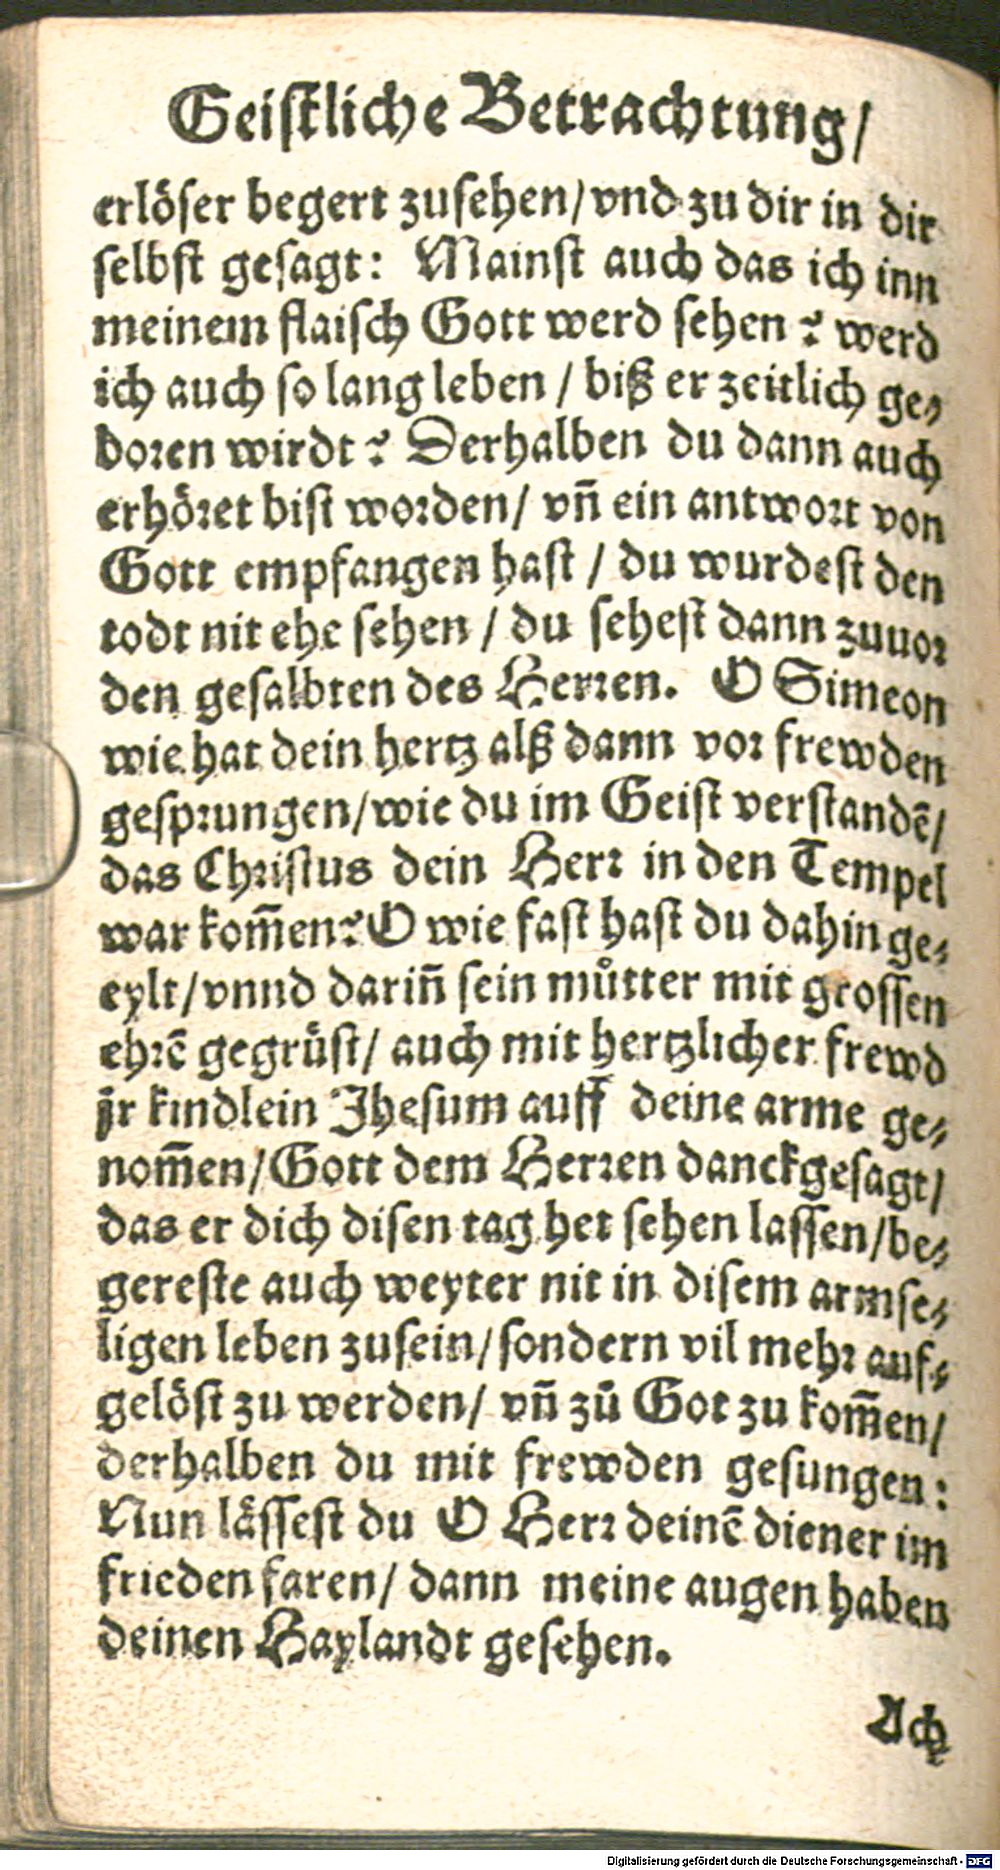 Geistliche Betrachtung/
erlöser begert zusehen/vnd zu dir in dir
selbst gesagt: Mainst auch das ich inn
meinem flaisch Gott werd sehen? werd
ich auch so lang leben / biß er zeitlich ge-
boren wirdt? Derhalben du dann auch
erhöret bist worden/ vn̄ ein antwort von
Gott empfangen hast / du wurdest den
todt nit ehe sehen / du sehest dann zuuor
den gesalbten des Herren. O Simeon
wie hat dein hertz alß dann vor frewden
gesprungen/wie du im Geist verstandē/
das Christus dein Herr in den Tempel
war kom̄en? O wie fast hast du dahin ge-
eylt/vnnd darin̄ sein můtter mit grossen
ehrē gegrüst/ auch mit hertzlicher frewd
jr kindlein Jhesum auff deine arme ge-
nom̄en/Gott dem Herren danckgesagt/
das er dich disen tag het sehen lassen/be-
gereste auch weyter nit in disem armse-
ligen leben zusein/sondern vil mehr auf-
gelöst zu werden/ vn̄ zů Got zu kom̄en/
derhalben du mit frewden gesungen:
Nun lässest du O Herr deinē diener im
frieden faren/ dann meine augen haben
deinen Haylandt gesehen.
Ach
Digitalisierung gefördert durch die Deutsche Forschungsgemeinschaft - DFG